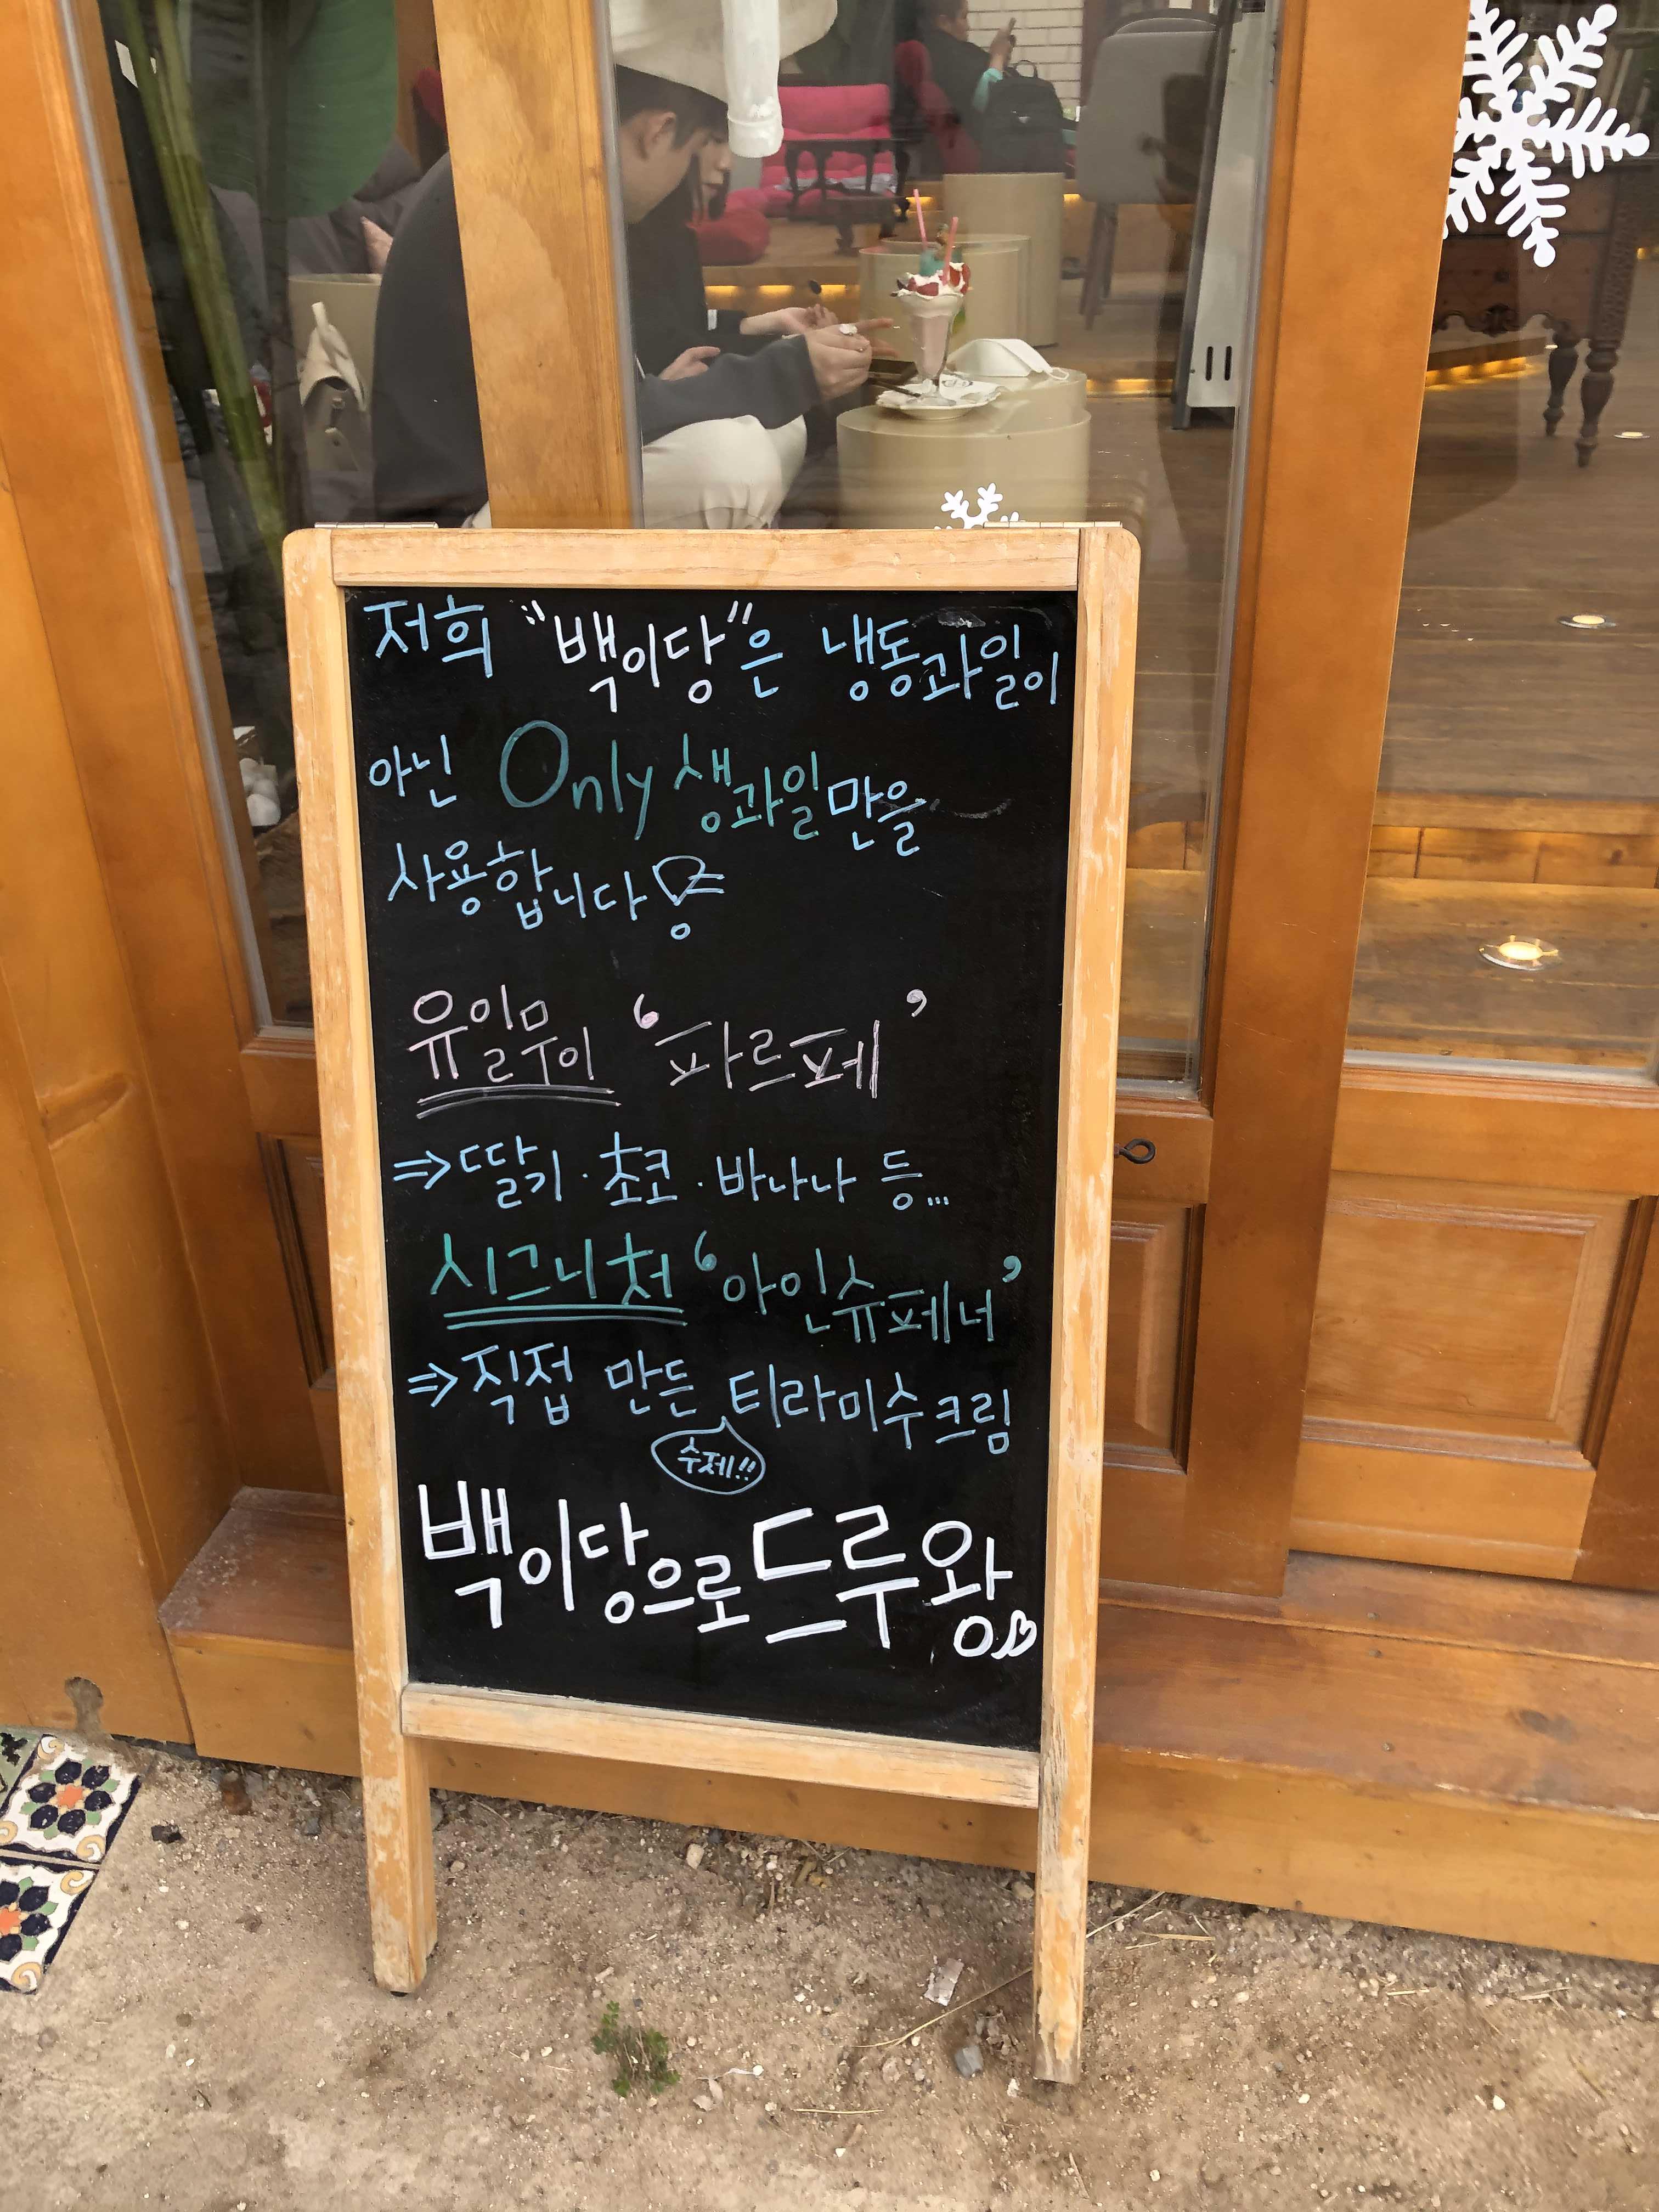 저희 "백이당"은 냉동과일이
아닌 Only 생과일만을
사용합니다
유일무이 '파르페'
⇒ 딸기·초코·바나나 등...
시그니처 '아인슈페너'
⇒ 직접 만든 티라미수크림
수제!!
백이당으로 드루왕♡